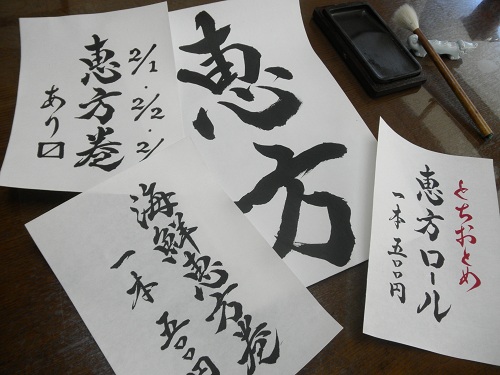 2/1・2/2・2/
恵方巻
あり〼
恵方
海鮮恵方巻
一本 五〇〇円
とちおとめ
恵方ロール
一本 五〇〇円